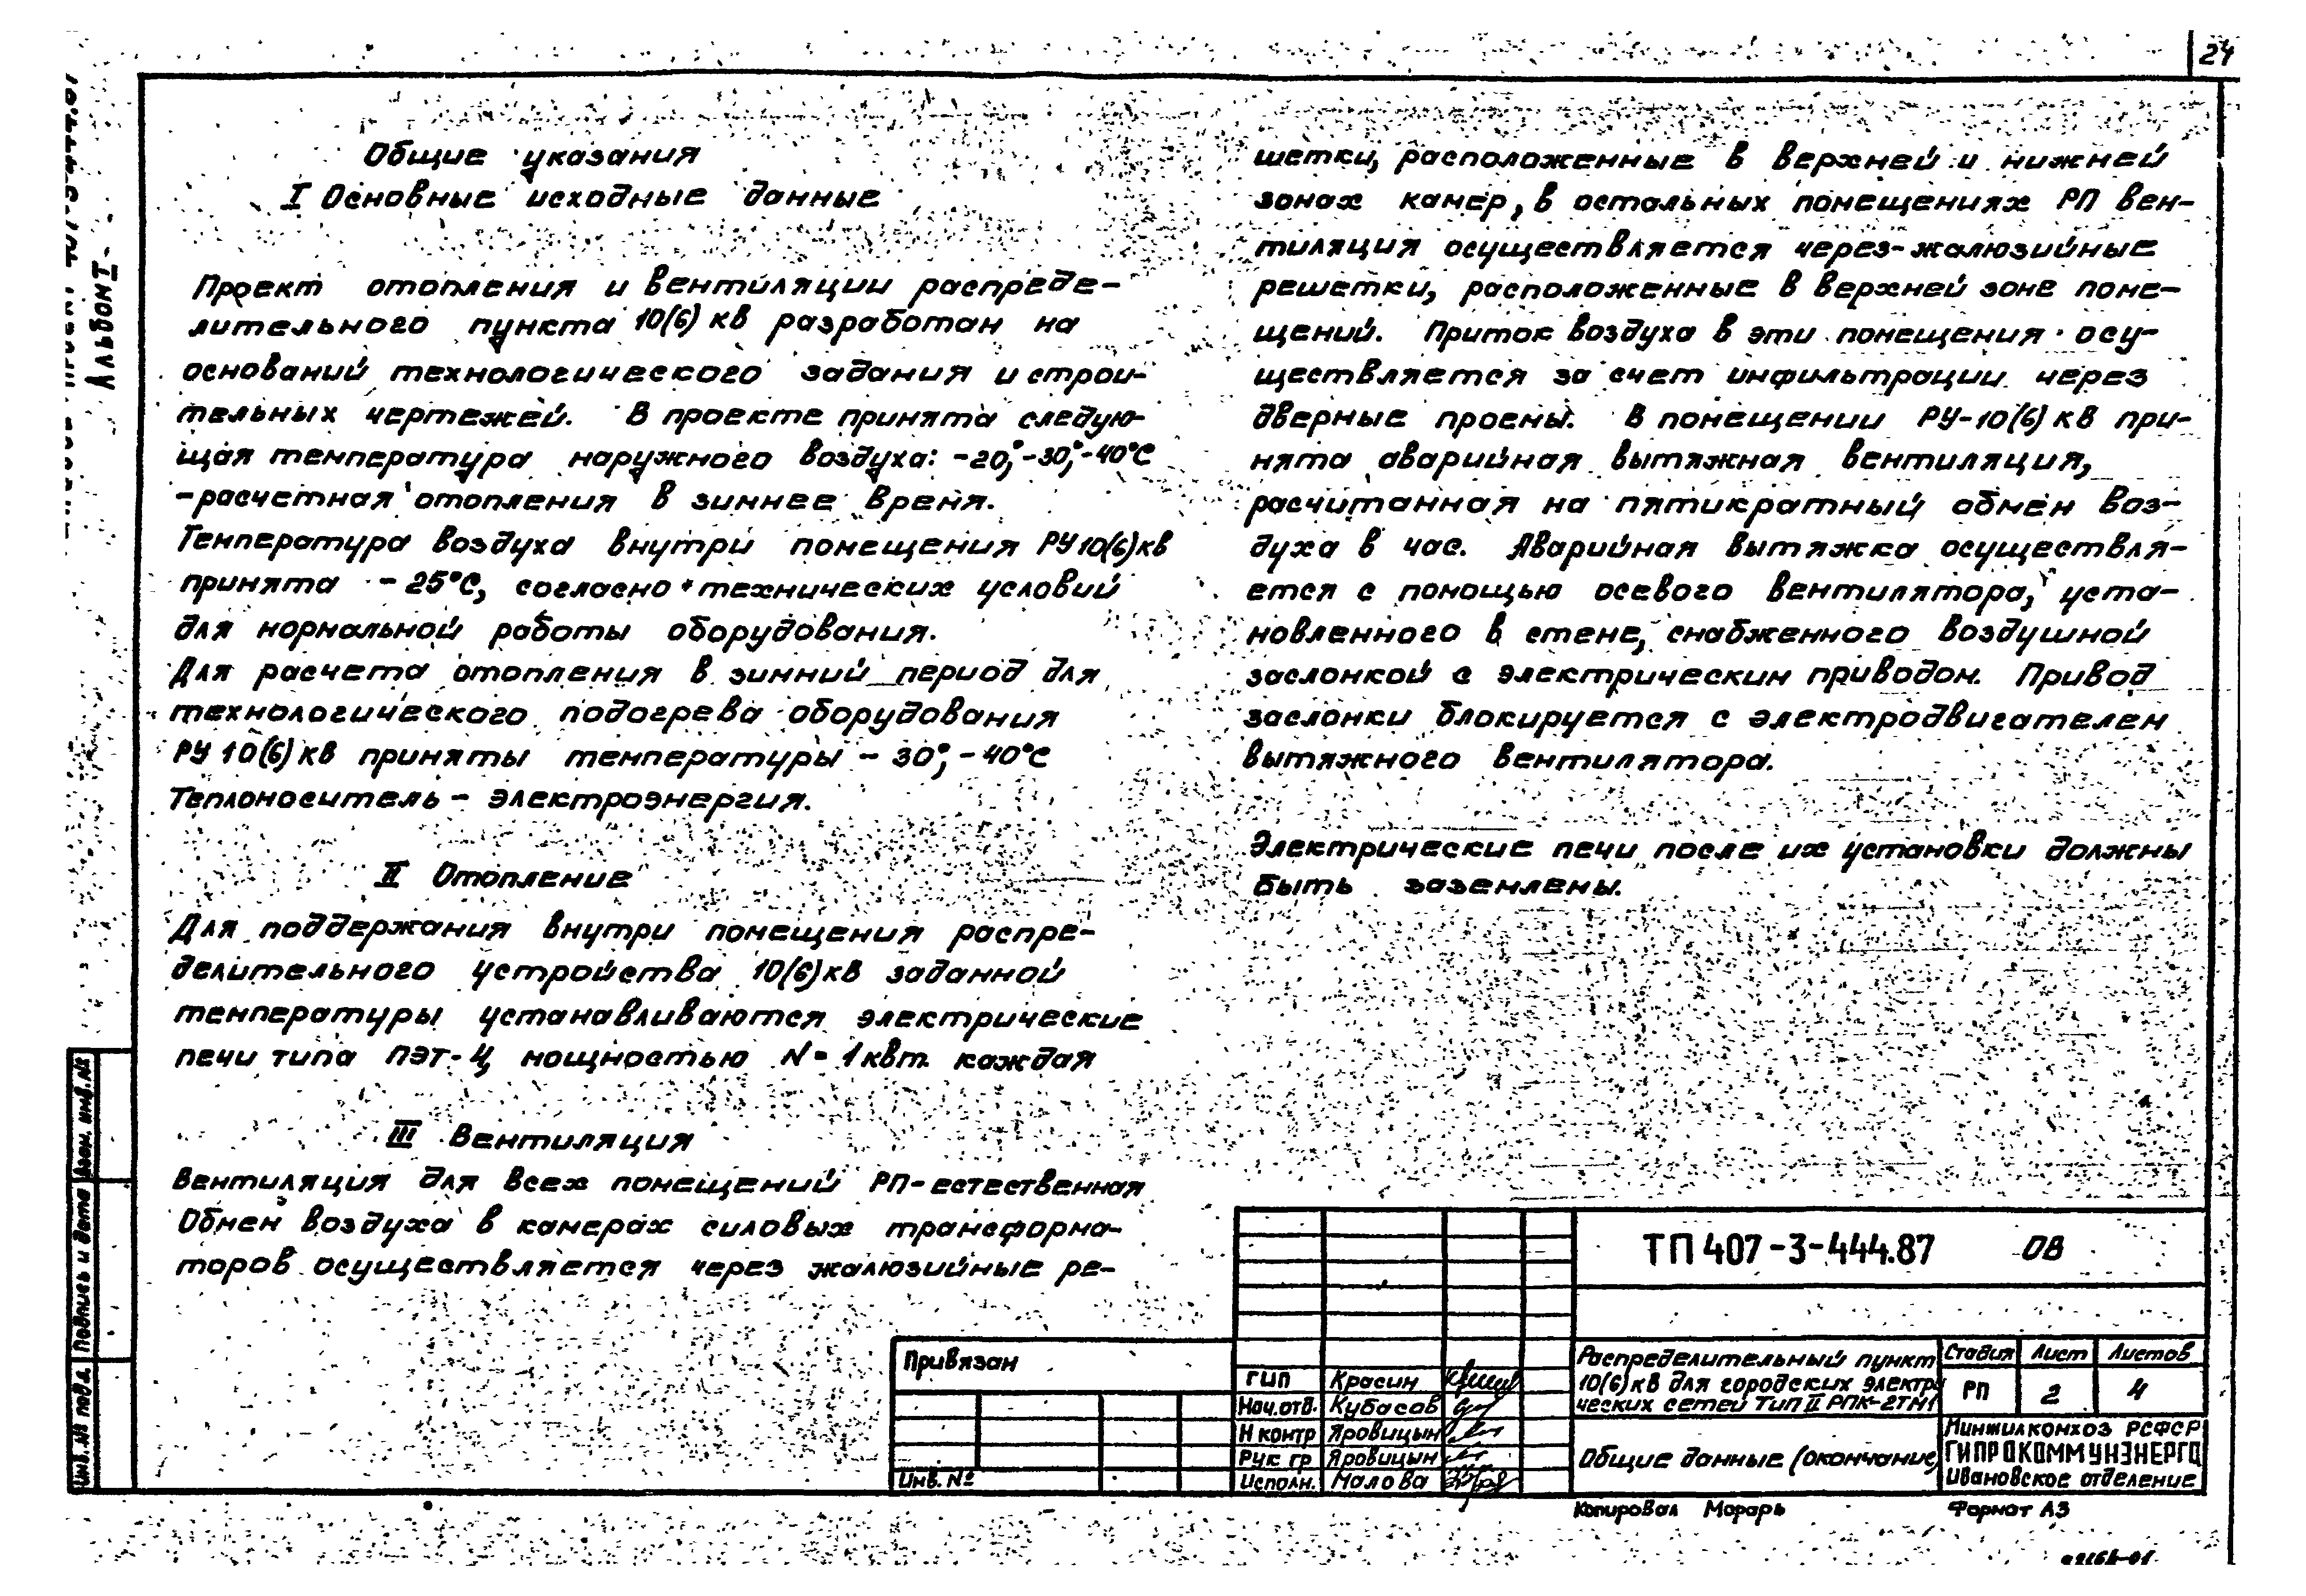 24
Альбом I
Общие указания
I Основные исходные данные
Проект отопления и вентиляции распреде-
лительного пункта 10(6) кв разработан на
оснований технологического задания и строи-
тельных чертежей. В проекте принята следую-
щая температура наружного воздуха: -20°, -30°, -40°С
-расчетная отопления в зимнее время.
Температура воздуха внутри помещения РУ 10(6) кв
принята - 25°С, согласно технических условий
для нормальной работы оборудования.
Для расчета отопления в зимний период для
технологического подогрева оборудования
РУ 10(6) кв приняты температуры - 30°, - 40°С
Теплоноситель - электроэнергия.
II Отопление
Для поддержания внутри помещения распре-
делительного устройства 10(6) кв заданной
температуры устанавливаются электрические
печи типа ПЭТ-4, мощностью N = 1 квт. каждая
III Вентиляция
Вентиляция для всех помещений РП-естественная
Обмен воздуха в камерах силовых трансформа-
торов осуществляется через жалюзийные ре-
шетки, расположенные в верхней и нижней
зонах камер, в остальных помещениях РП вен-
тиляция осуществляется через жалюзийные
решетки, расположенные в верхней зоне поме-
щений. Приток воздуха в эти помещения осу-
ществляется за счет инфильтрации через
дверные проемы. В помещении РУ-10(6) кв при-
нята аварийная вытяжная вентиляция,
расчитанная на пятикратный обмен воз-
духа в час. Аварийная вытяжка осуществля-
ется с помощью осевого вентилятора, уста-
новленного в стене, снабженного воздушной
заслонкой с электрическим приводом. Привод
заслонки блокируется с электродвигателем
вытяжного вентилятора.
Электрические печи после их установки должны
быть заземлены.
Взам. инв. №
Подпись и дата
Инв. № подл.
Привязан
Инв. №
ГИП Красин
Нач. отд. Кубасов
Н контр Яровицын
Рук гр Яровицын
Исполн. Малова
ТП 407-3-444.87 ОВ
Распределительный пункт
10(6) кв для городских электри
ческих сетей тип II РПК-2ТМ1
Стадия Лист Листов
РП 2 4
Общие данные (окончание)
Минжилкомхоз РСФСР
ГИПРОКОММУНЭНЕРГО
Ивановское отделение
Копировал Морарь Формат А3